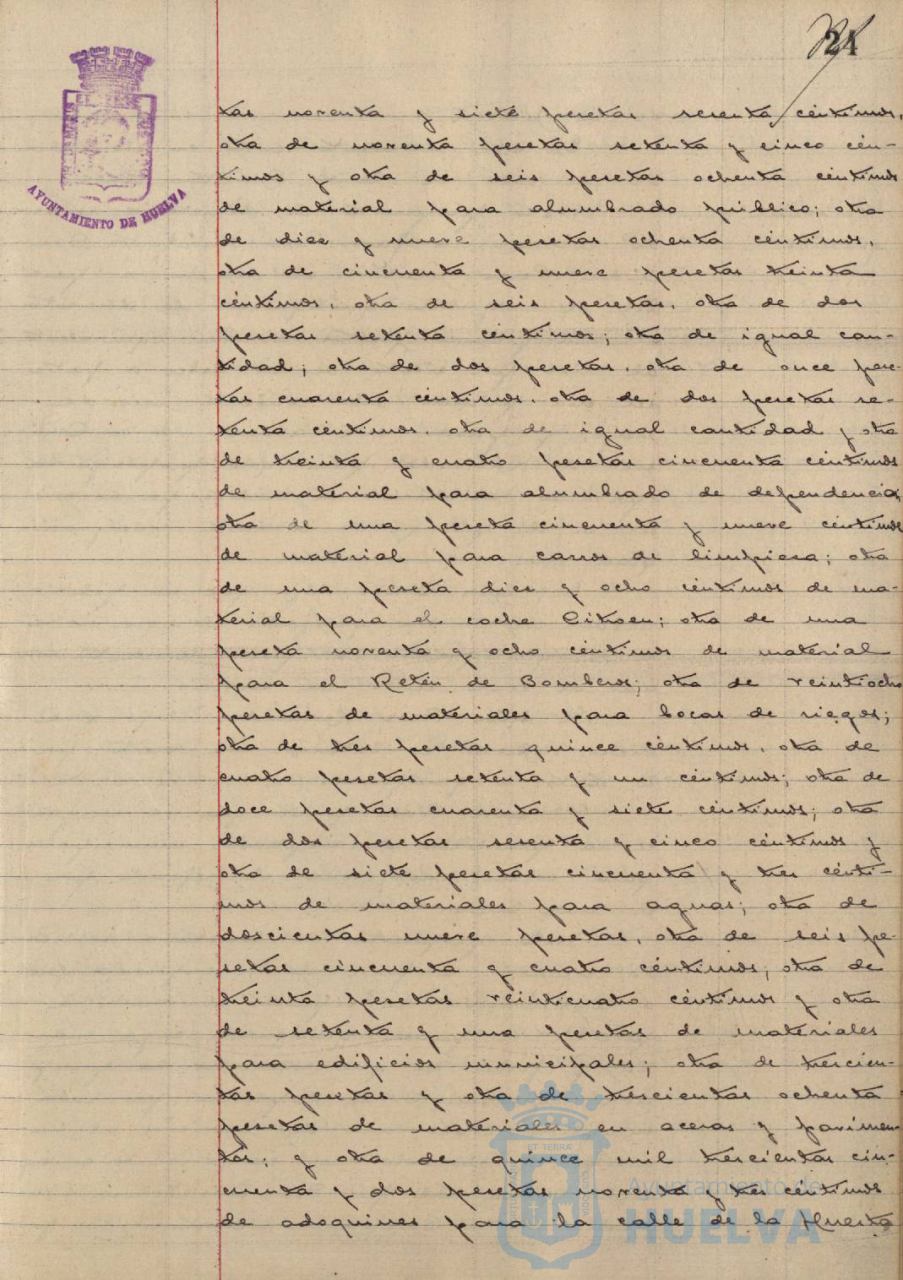 24
AYUNTAMIENTO DE HUELVA
tas noventa y siete pesetas sesenta céntimos,
otra de noventa pesetas setenta y cinco cén-
timos y otra de seis pesetas ochenta céntimos
de material para alumbrado público; otra
de diez y nueve pesetas ochenta céntimos,
otra de cincuenta y nueve pesetas treinta
céntimos, otra de seis pesetas, otra de dos
pesetas setenta céntimos; otra de igual can-
tidad; otra de dos pesetas, otra de once pese-
tas cuarenta céntimos, otra de dos pesetas se-
tenta céntimos, otra de igual cantidad y otra
de treinta y cuatro pesetas cincuenta céntimos
de material para alumbrado de dependencias,
otra de una peseta cincuenta y nueve céntimos
de material para carros de limpieza; otra
de una peseta diez y ocho céntimos de ma-
terial para el coche Citroen; otra de una
peseta noventa y ocho céntimos de material
para el Retén de Bomberos; otra de veintiocho
pesetas de materiales para bocas de riegos;
otra de tres pesetas quince céntimos, otra de
cuatro pesetas setenta y un céntimos; otra de
doce pesetas cuarenta y siete céntimos; otra
de dos pesetas sesenta y cinco céntimos y
otra de siete pesetas cincuenta y tres cénti-
mos de materiales para aguas; otra de
doscientas nueve pesetas, otra de seis pe-
setas cincuenta y cuatro céntimos, otra de
treinta pesetas veinticuatro céntimos y otra
de setenta y una pesetas de materiales
para edificios municipales; otra de trescien-
tas pesetas y otra de trescientas ochenta
pesetas de materiales en aceras y pavimen-
tos; y otra de quince mil trescientas cin-
cuenta y dos pesetas noventa y tres céntimos
de adoquines para la calle de la Huerta
Ayuntamiento de
HUELVA